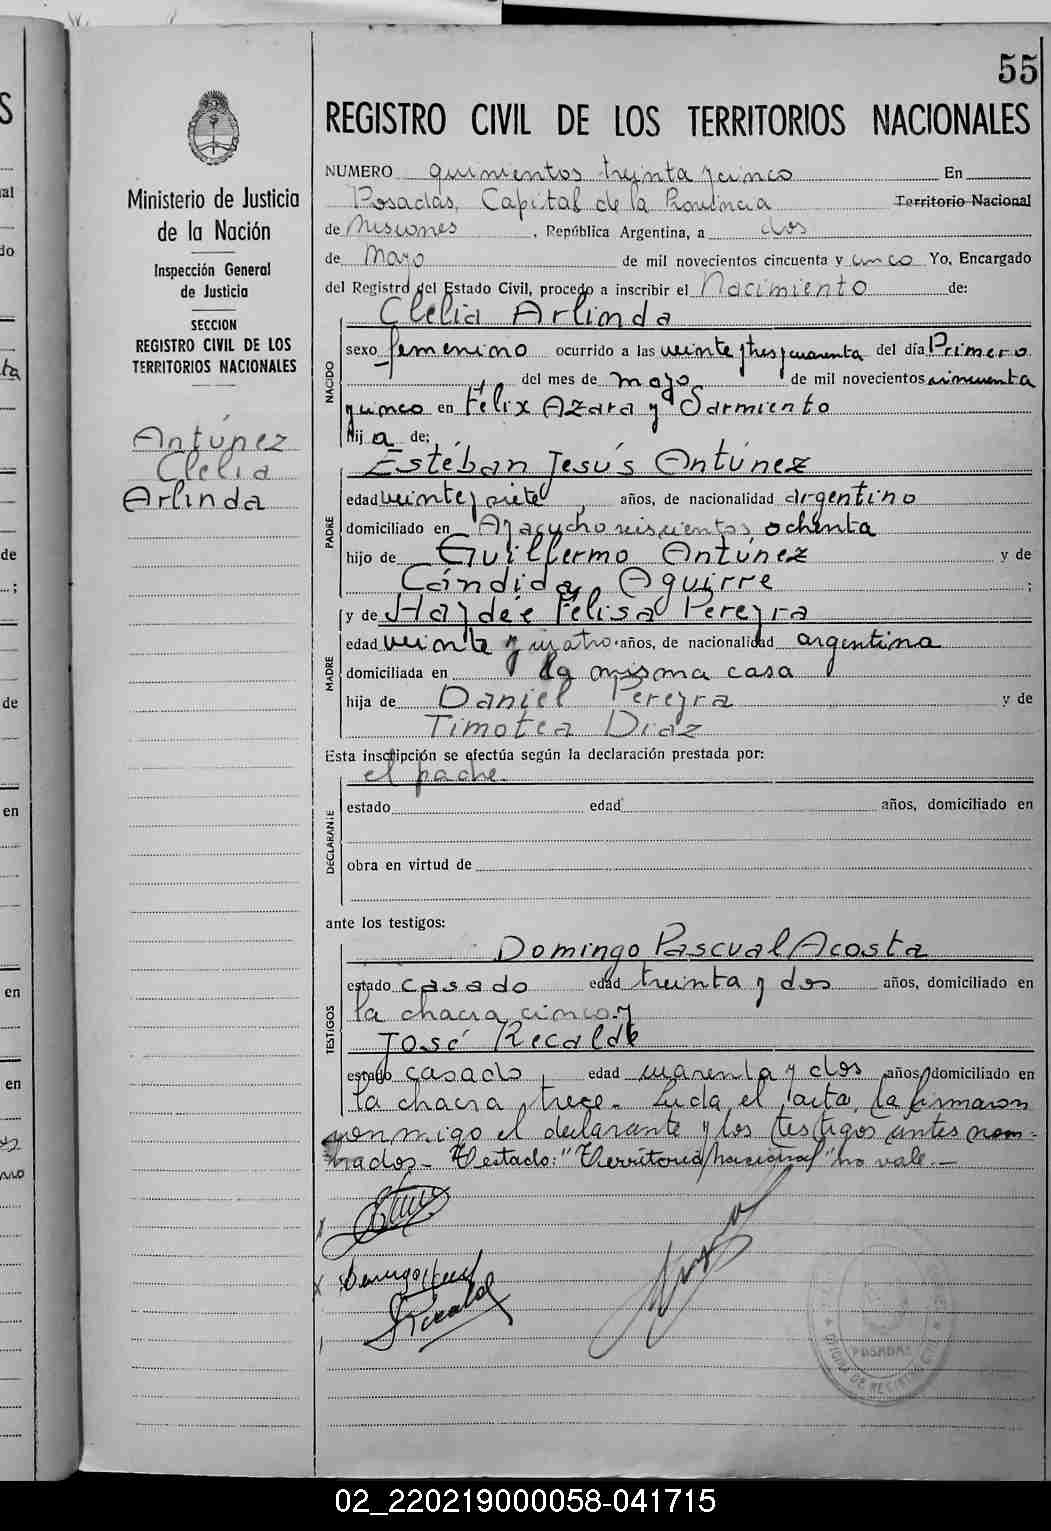 55
REGISTRO CIVIL DE LOS TERRITORIOS NACIONALES
Ministerio de Justicia
de la Nación
Inspección General
de Justicia
SECCION
REGISTRO CIVIL DE LOS
TERRITORIOS NACIONALES
Antúnez
Clelia
Arlinda
NUMERO quinientos treinta y cinco En
Posadas, Capital de la Provincia Territorio Nacional
de Misiones, República Argentina, a dos
de Mayo de mil novecientos cincuenta y cinco Yo, Encargado
del Registro del Estado Civil, procedo a inscribir el Nacimiento de:
Clelia Arlinda
NACIDO
sexo femenino ocurrido a las veinte y tres y cuarenta del día Primero
del mes de mayo de mil novecientos cincuenta
y cinco en Félix Azara y Sarmiento
Hija de:
Estéban Jesús Antúnez
PADRE
edad veinte y siete años, de nacionalidad argentino
domiciliado en Ayacucho seiscientos ochenta
hijo de Guillermo Antúnez y de
Cándida Aguirre ;
y de Haydée Felisa Pereyra
MADRE
edad veinte y cuatro años, de nacionalidad argentina
domiciliada en la misma casa
hija de Daniel Pereyra y de
Timotea Diaz
Esta inscripción se efectúa según la declaración prestada por:
el padre.
DECLARANTE
estado edad años, domiciliado en
obra en virtud de
ante los testigos:
Domingo Pascual Acosta
TESTIGOS
estado casado edad treinta y dos años, domiciliado en
la chacra cinco y
José Recalde
estado casado edad cuarenta y dos años, domiciliado en
la chacra trece. Leida el acta, la firmaron
conmigo el declarante y los testigos antes nom-
brados.- Testado: "Territorio nacional" no vale.-
POSADAS
OFICINA DE REGISTRO CIVIL
02_220219000058-041715